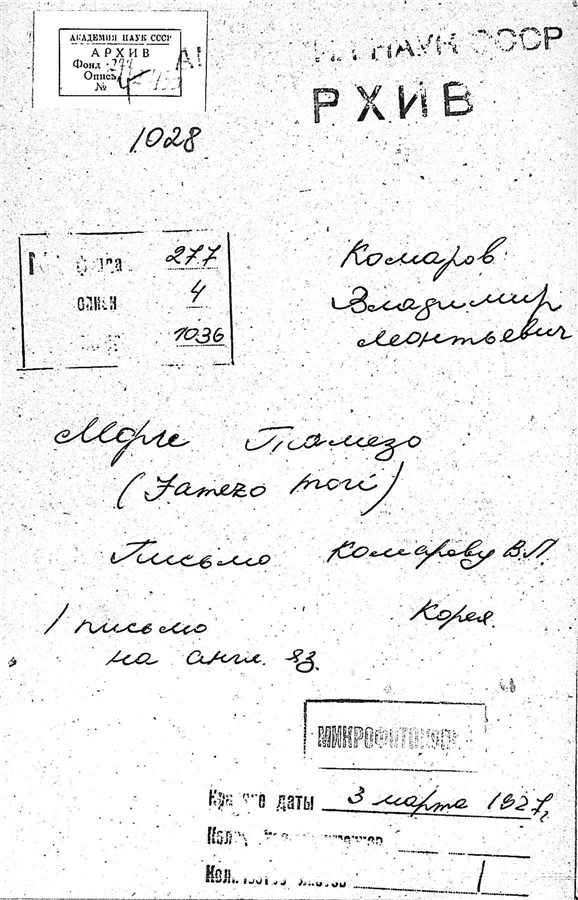 АКАДЕМИЯ НАУК СССР
АРХИВ
Фонд 277
Опись 4
№
НАУК СССР
РХИВ
1028
277
опись 4
1036
Комаров
Владимир
Леонтьевич
Мори Тамезо
(Tamezo Mori)
Письмо Комарову В.Л.
Корея.
1 письмо
на англ. яз.
МИКРОФОТОКОПИЯ
даты 3 марта 1927 г.
1